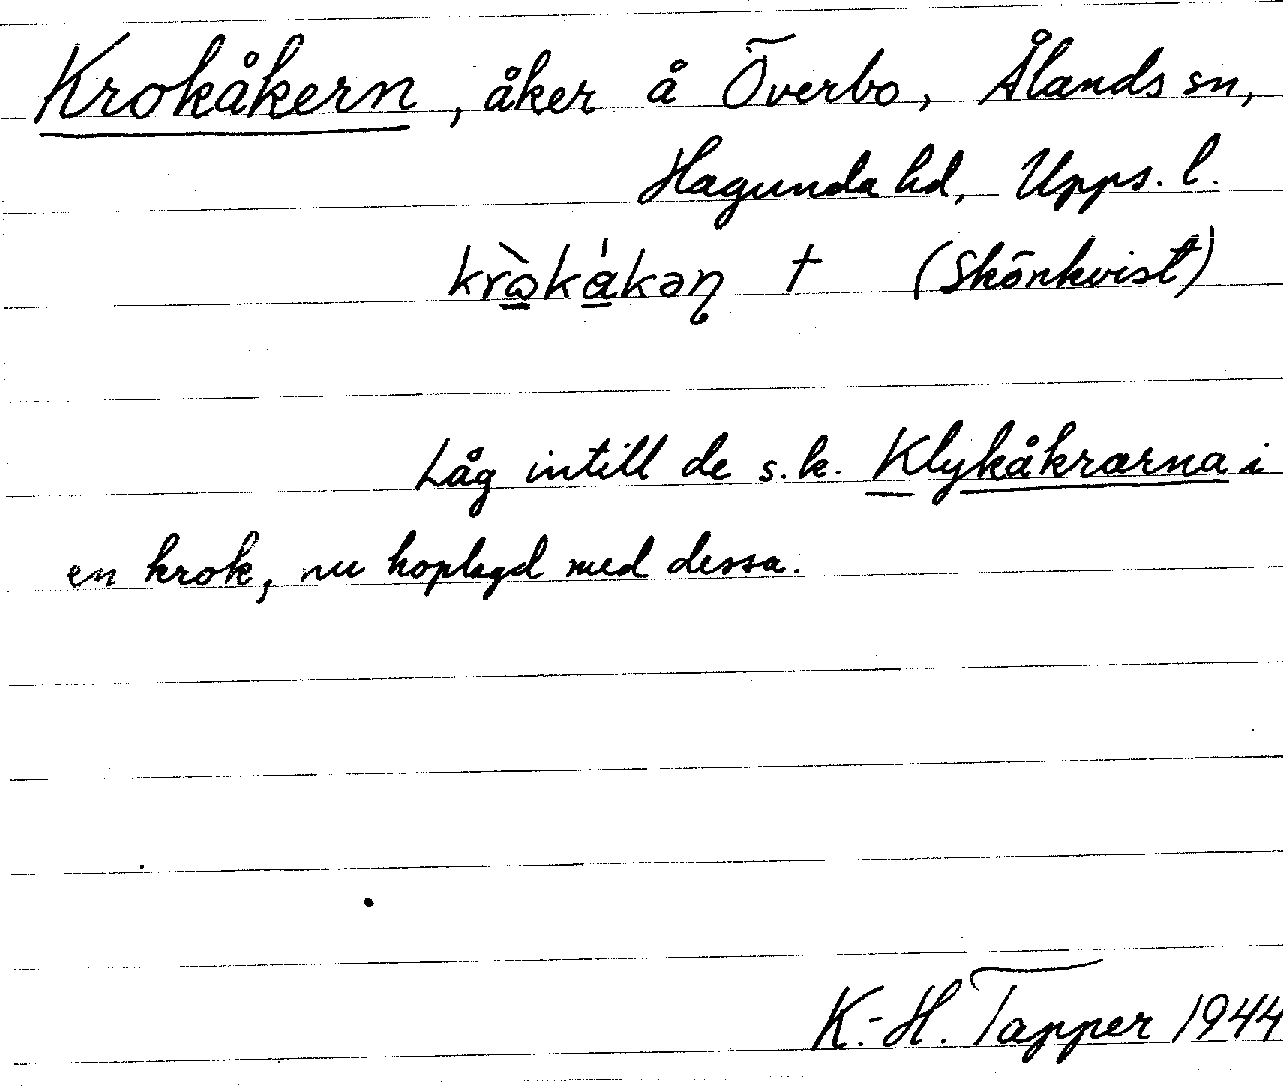 Krokåkern, åker å Överbo, Ålands sn,
Hagunda hd, Upps. l.
† (Skönkvist)
Låg intill de s.k. Klykåkrarna i
en krok, nu hoplagd med dessa.
K.-H. Tapper 1944